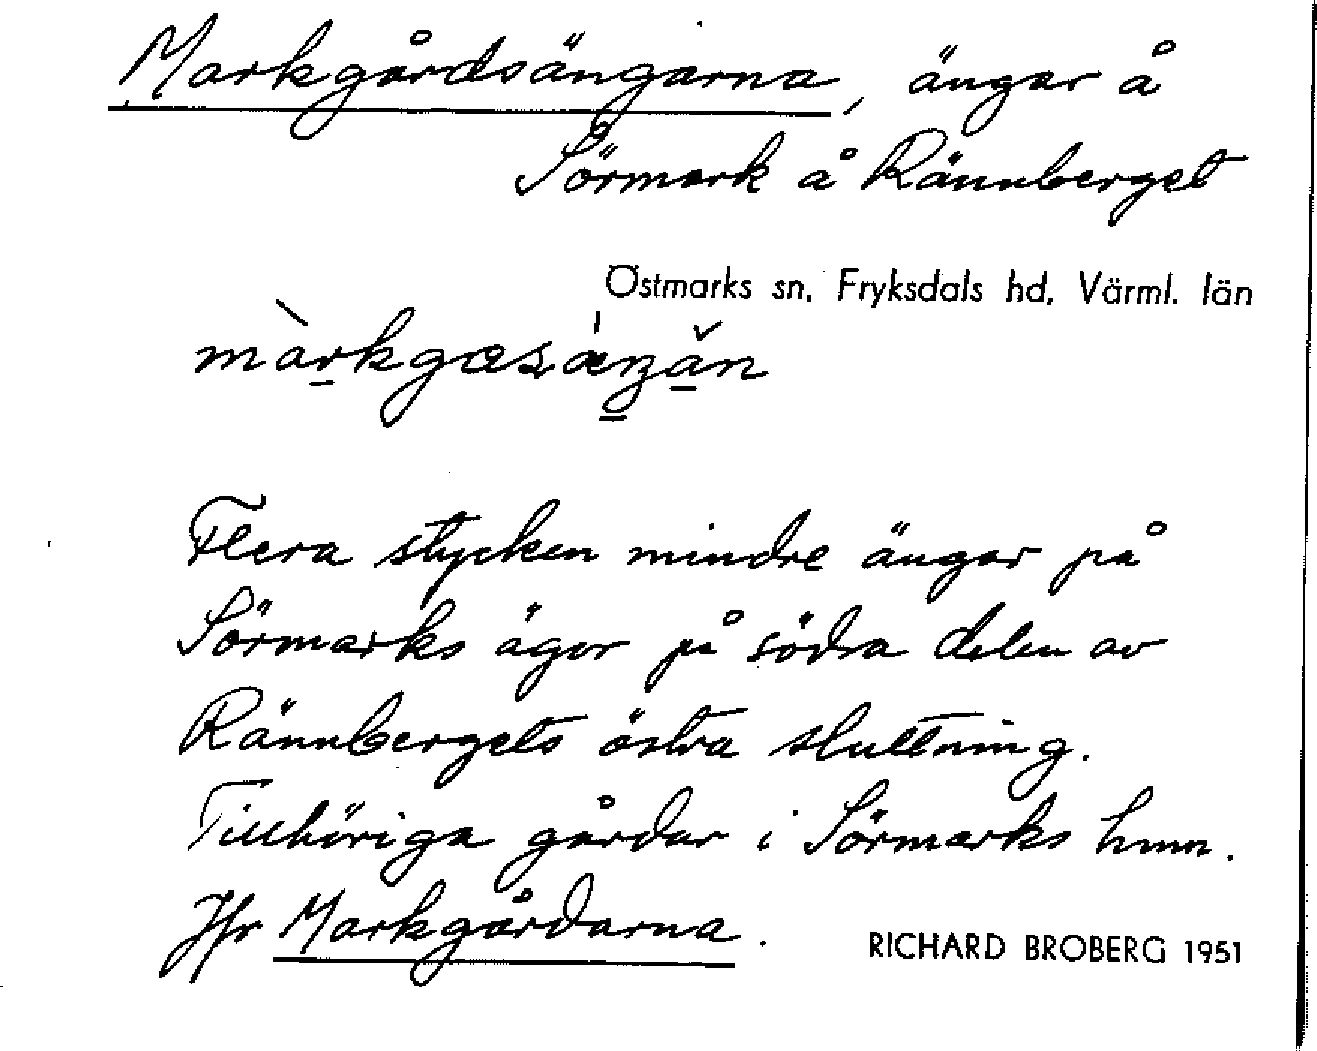 Markgårdsängarna, ängar å
Sörmark å Rännberget
Östmarks sn. Fryksdals hd. Värml. län
Flera stycken mindre ängar på
Sörmarks ägor på södra delen av
Rännbergets östra sluttning.
Tillhöriga gårdar i Sörmarks hmn.
Jfr Markgårdarna.
RICHARD BROBERG 1951